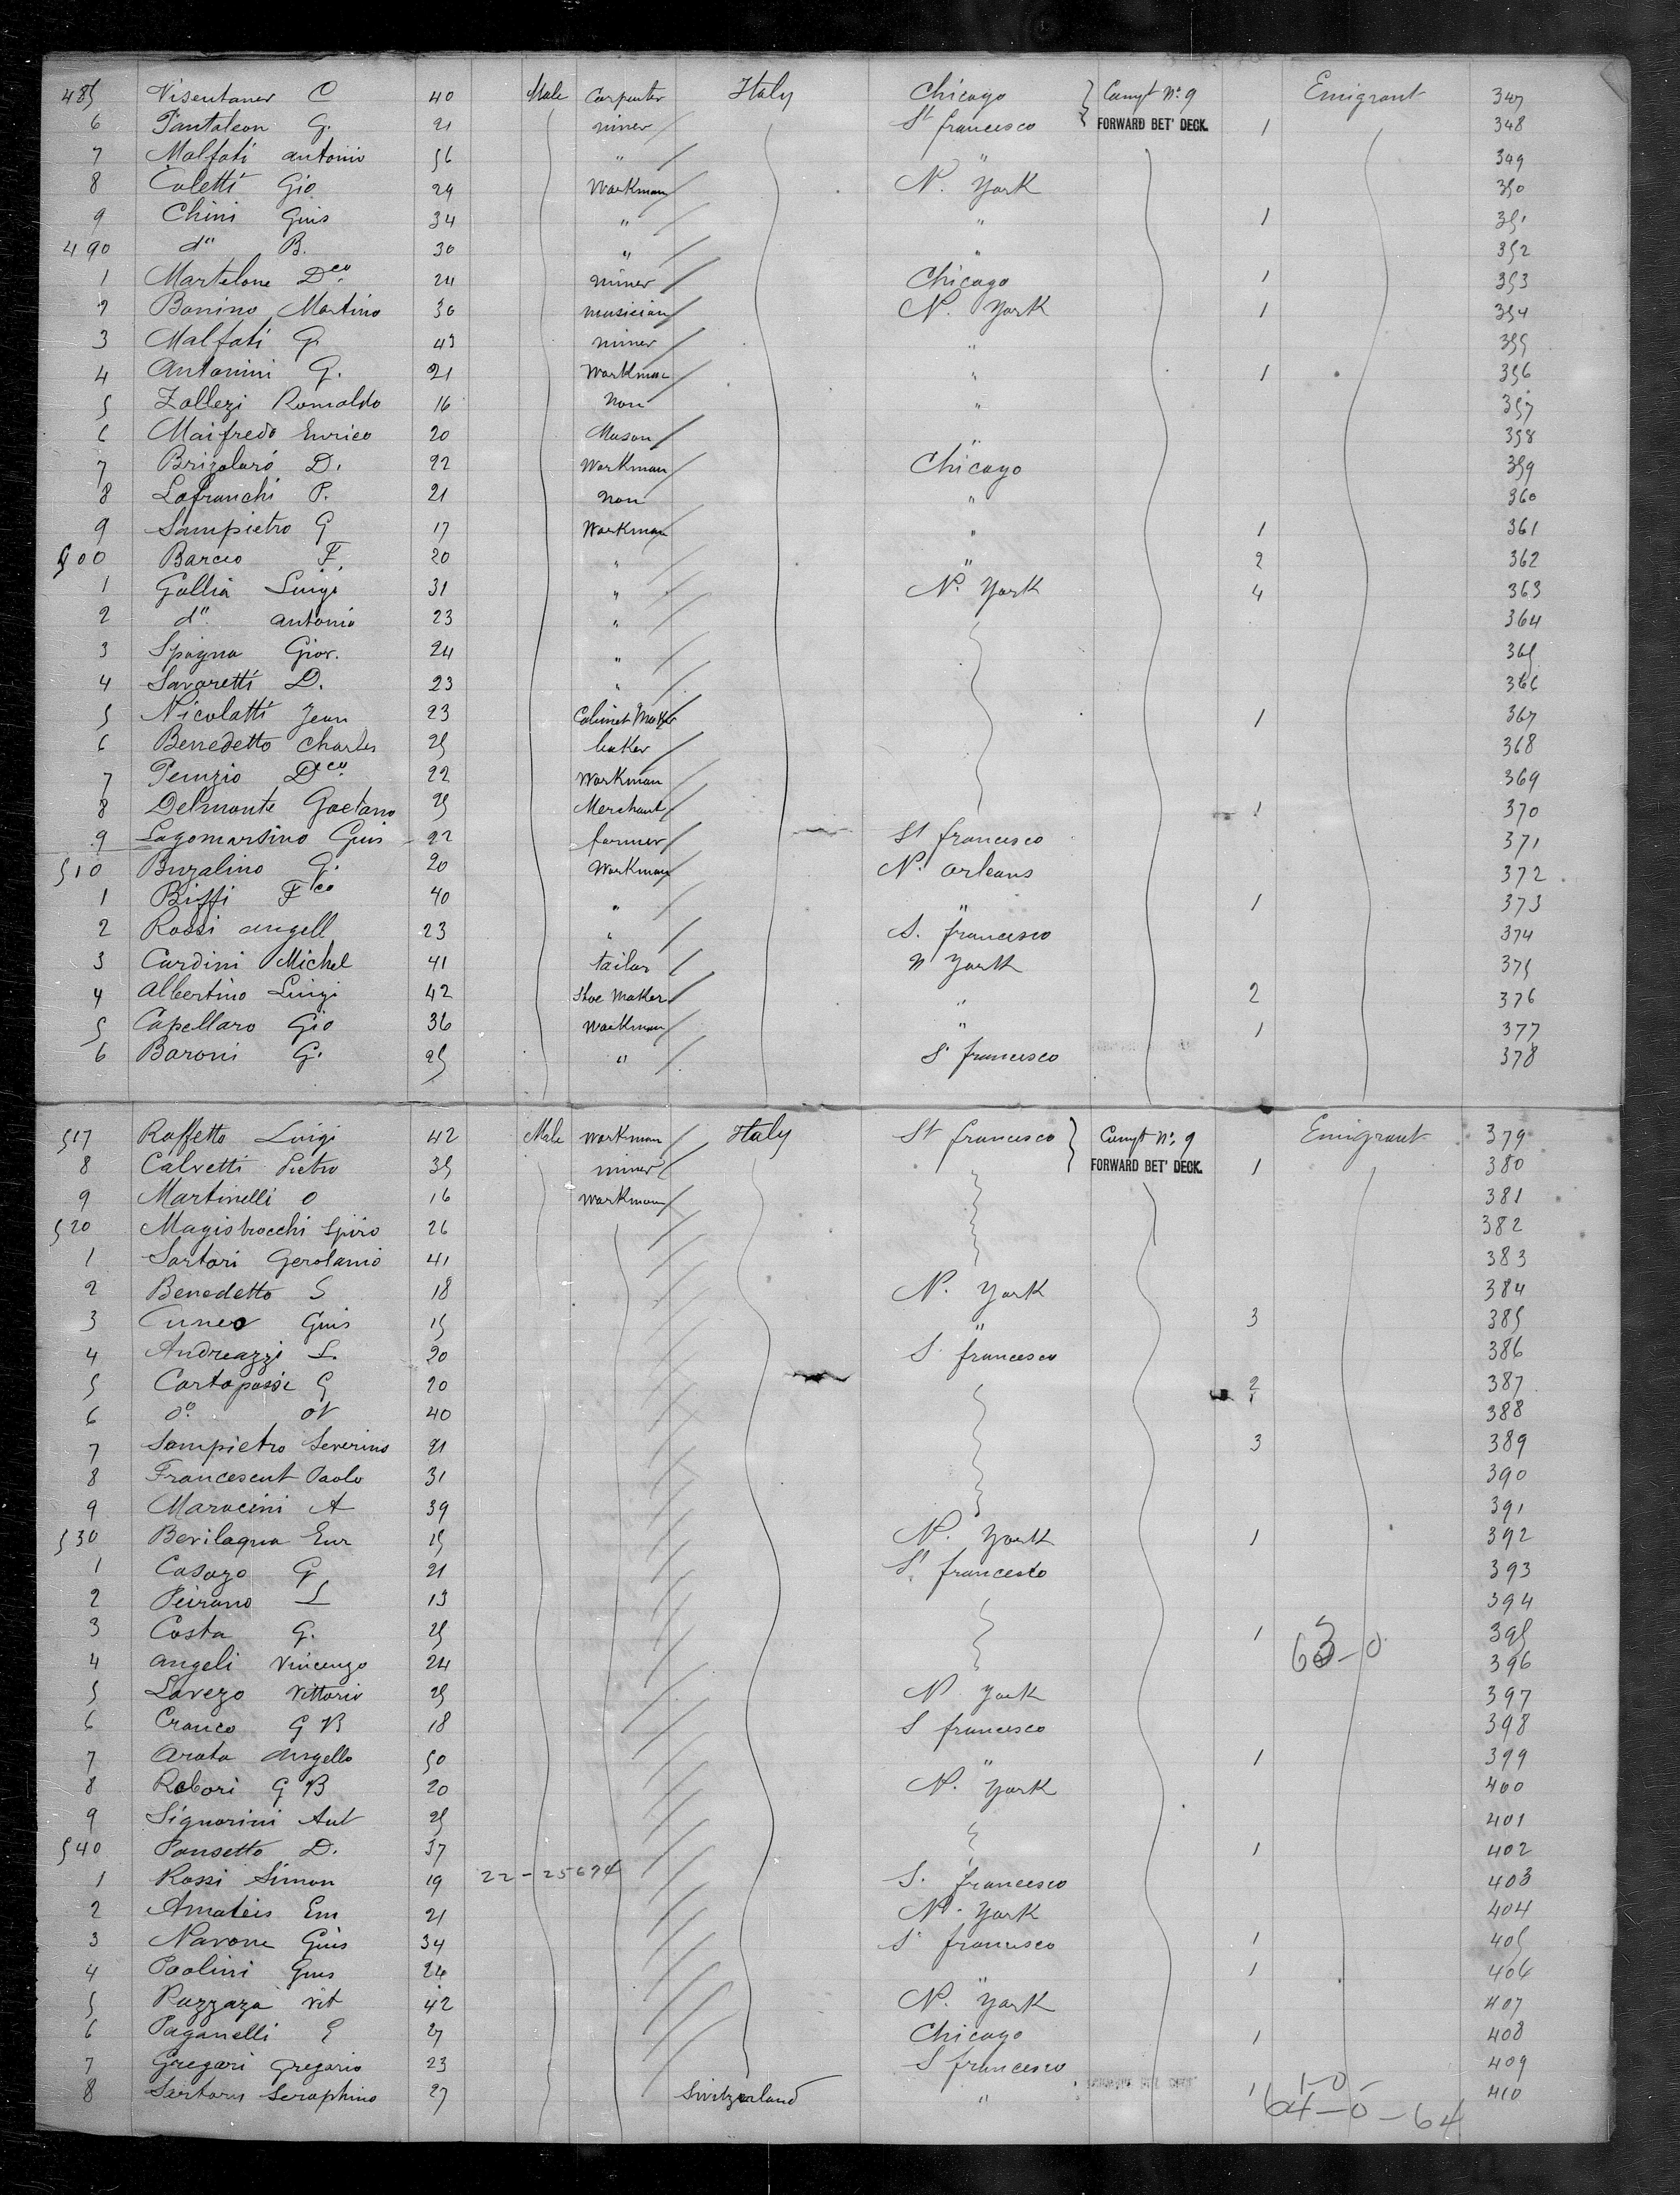 485 Visentaner C 40 Male Carpenter Italy Chicago Compt No. 9 Emigrant 347
6 Pantaleon G. 21 miner St francesco FORWARD BET' DECK. 1 348
7 Malfati antonio 56 " " 349
8 Coletti Gio 24 Workman N. York 350
9 Chini Guis 34 " " 1 351
490 do B. 30 " " 352
1 Martelone Dco 24 miner Chicago 1 353
2 Bonino Martino 30 musician N. York 1 354
3 Malfati G. 43 miner " 355
4 Antonini G. 21 Workman " 1 356
5 Zallezi Romaldo 16 Non " 357
6 Maifredo Enrico 20 Mason " 358
7 Brizolaró D. 22 Workman Chicago 359
8 Lafranchi P. 21 non " 360
9 Sampietro G 17 Workman " 1 361
500 Barceo F. 20 " " 2 362
1 Gallia Luigi 31 " N. York 4 363
2 do antonio 23 " 364
3 Spagna Giov. 24 " 365
4 Savaretti D. 23 " 366
5 Nicolatti Jean 23 Cabinet Maker 1 367
6 Benedetto Charles 25 baker 368
7 Penzio Dco 22 Workman 369
8 Delmonte Gaetano 25 Merchant 1 370
9 Lagomarsino Guis 22 farmer St francesco 371
510 Buzalino G. 20 Workman N. Orleans 372
1 Biffi Fco 40 " " 1 373
2 Rossi angell 23 " S. francesco 374
3 Cardini Michel 41 tailor N York 375
4 Albertino Luigi 42 Shoe Maker " 2 376
5 Capellaro Gio 36 Workman " 1 377
6 Baroni G. 25 " S. francesco 378
517 Raffetto Luigi 42 Male Workman Italy St francesco Compt No. 9 Emigrant 379
8 Calvetti Pietro 35 miner FORWARD BET' DECK. 1 380
9 Martinelli O 16 Workman 381
520 Magistrocchi Spiro 26 382
1 Sartori Gerolamo 41 383
2 Benedetto S 18 N. York 384
3 Cuneo Guis 15 " 3 385
4 Andreazzi L. 20 S. francesco 386
5 Cartopassi G 20 2 387
6 do 40 388
7 Sampietro Severino 21 3 389
8 Francescut Paolo 31 390
9 Maracini A 39 391
530 Bevilaqua Eur 15 N. York 1 392
1 Casazo G 21 St francesco 393
2 Peirano L 13 394
3 Costa G. 25 1 395
63-0
4 angeli Vincenzo 24 396
5 Lavezo Vittorio 25 N. York 397
6 Craneo G B 18 S francesco 398
7 Arata Angello 50 " 1 399
8 Rebori G B 20 N. York 400
9 Signorini Ant 25 401
540 Ponsetto D. 37 1 402
1 Rossi Simon 19 22-25694 S. francesco 403
2 Amateis Em 21 N. York 404
3 Navone Guis 34 S. francesco 1 405
4 Paolini Guis 24 " 1 406
5 Razzaza Vit 42 N. York 407
6 Paganelli E 27 Chicago 1 408
7 Gregori Gregorio 23 S francesco 409
8 Sartorus Seraphino 27 Switzerland " 1 410
1-0-
64-0-64